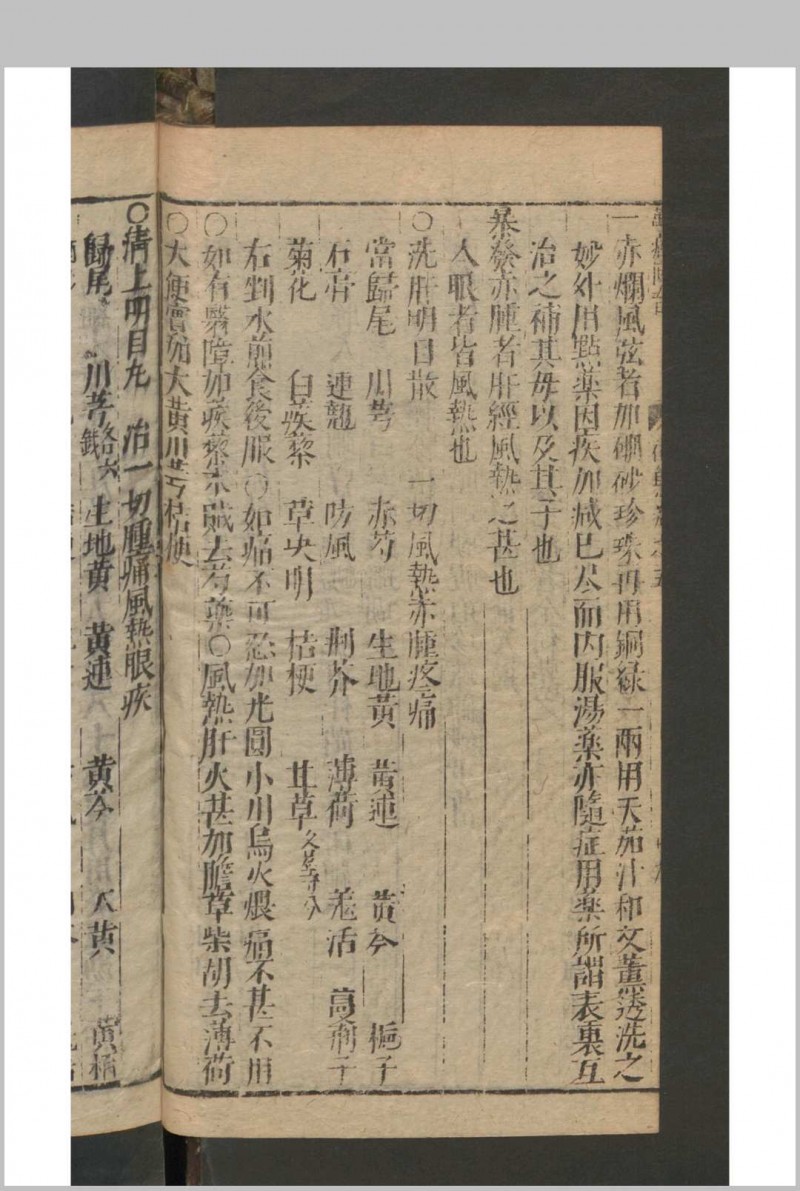 一赤爛風弦者加硼砂珍珠再用銅綠一兩用天茄汁和艾薰透洗之
妙外用點藥因疾加减已尽而内服湯藥亦隨症用藥所謂表裏互
治之補其母以及其子也
暴發赤腫者肝經風熱之甚也
入眼者皆風熱也
〇洗肝明目散 一切風熱赤腫疼痛
當歸尾 川芎 赤芍 生地黄 黄連 黄芩 梔子
石膏 連翹 防風 荆芥 薄荷 羗活 蔓荆子
菊花 白蒺藜 草决明 桔梗 甘草
右剉水煎食後服〇如痛不可忍加尤圓小川烏火煨痛不甚不用
〇如有翳障加蒺藜木賊去芍藥〇風熱肝火甚加膽草柴胡去薄荷
〇大便實加大黄川芎桔梗
〇清上明目丸 治一切腫痛風熱眼疾
歸尾 川芎 生地黄 黄連 黄芩 大黄 黄栢